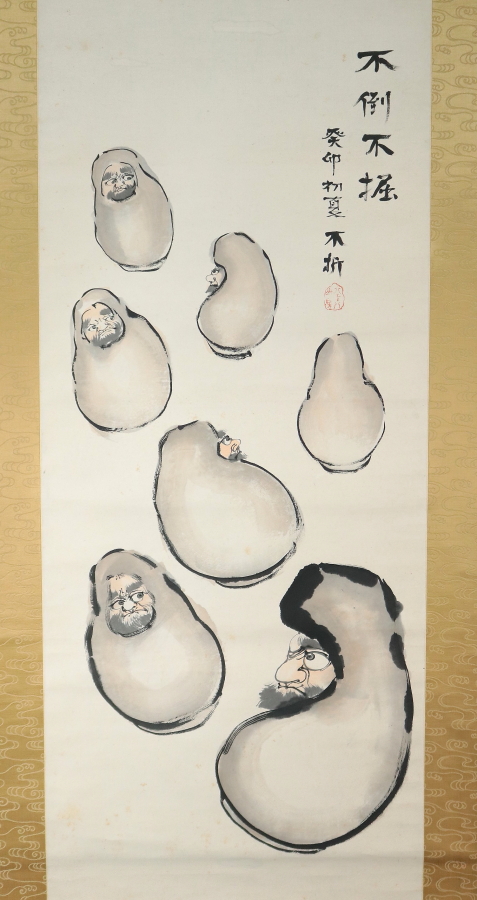 不倒不掘
癸卯初夏 不折